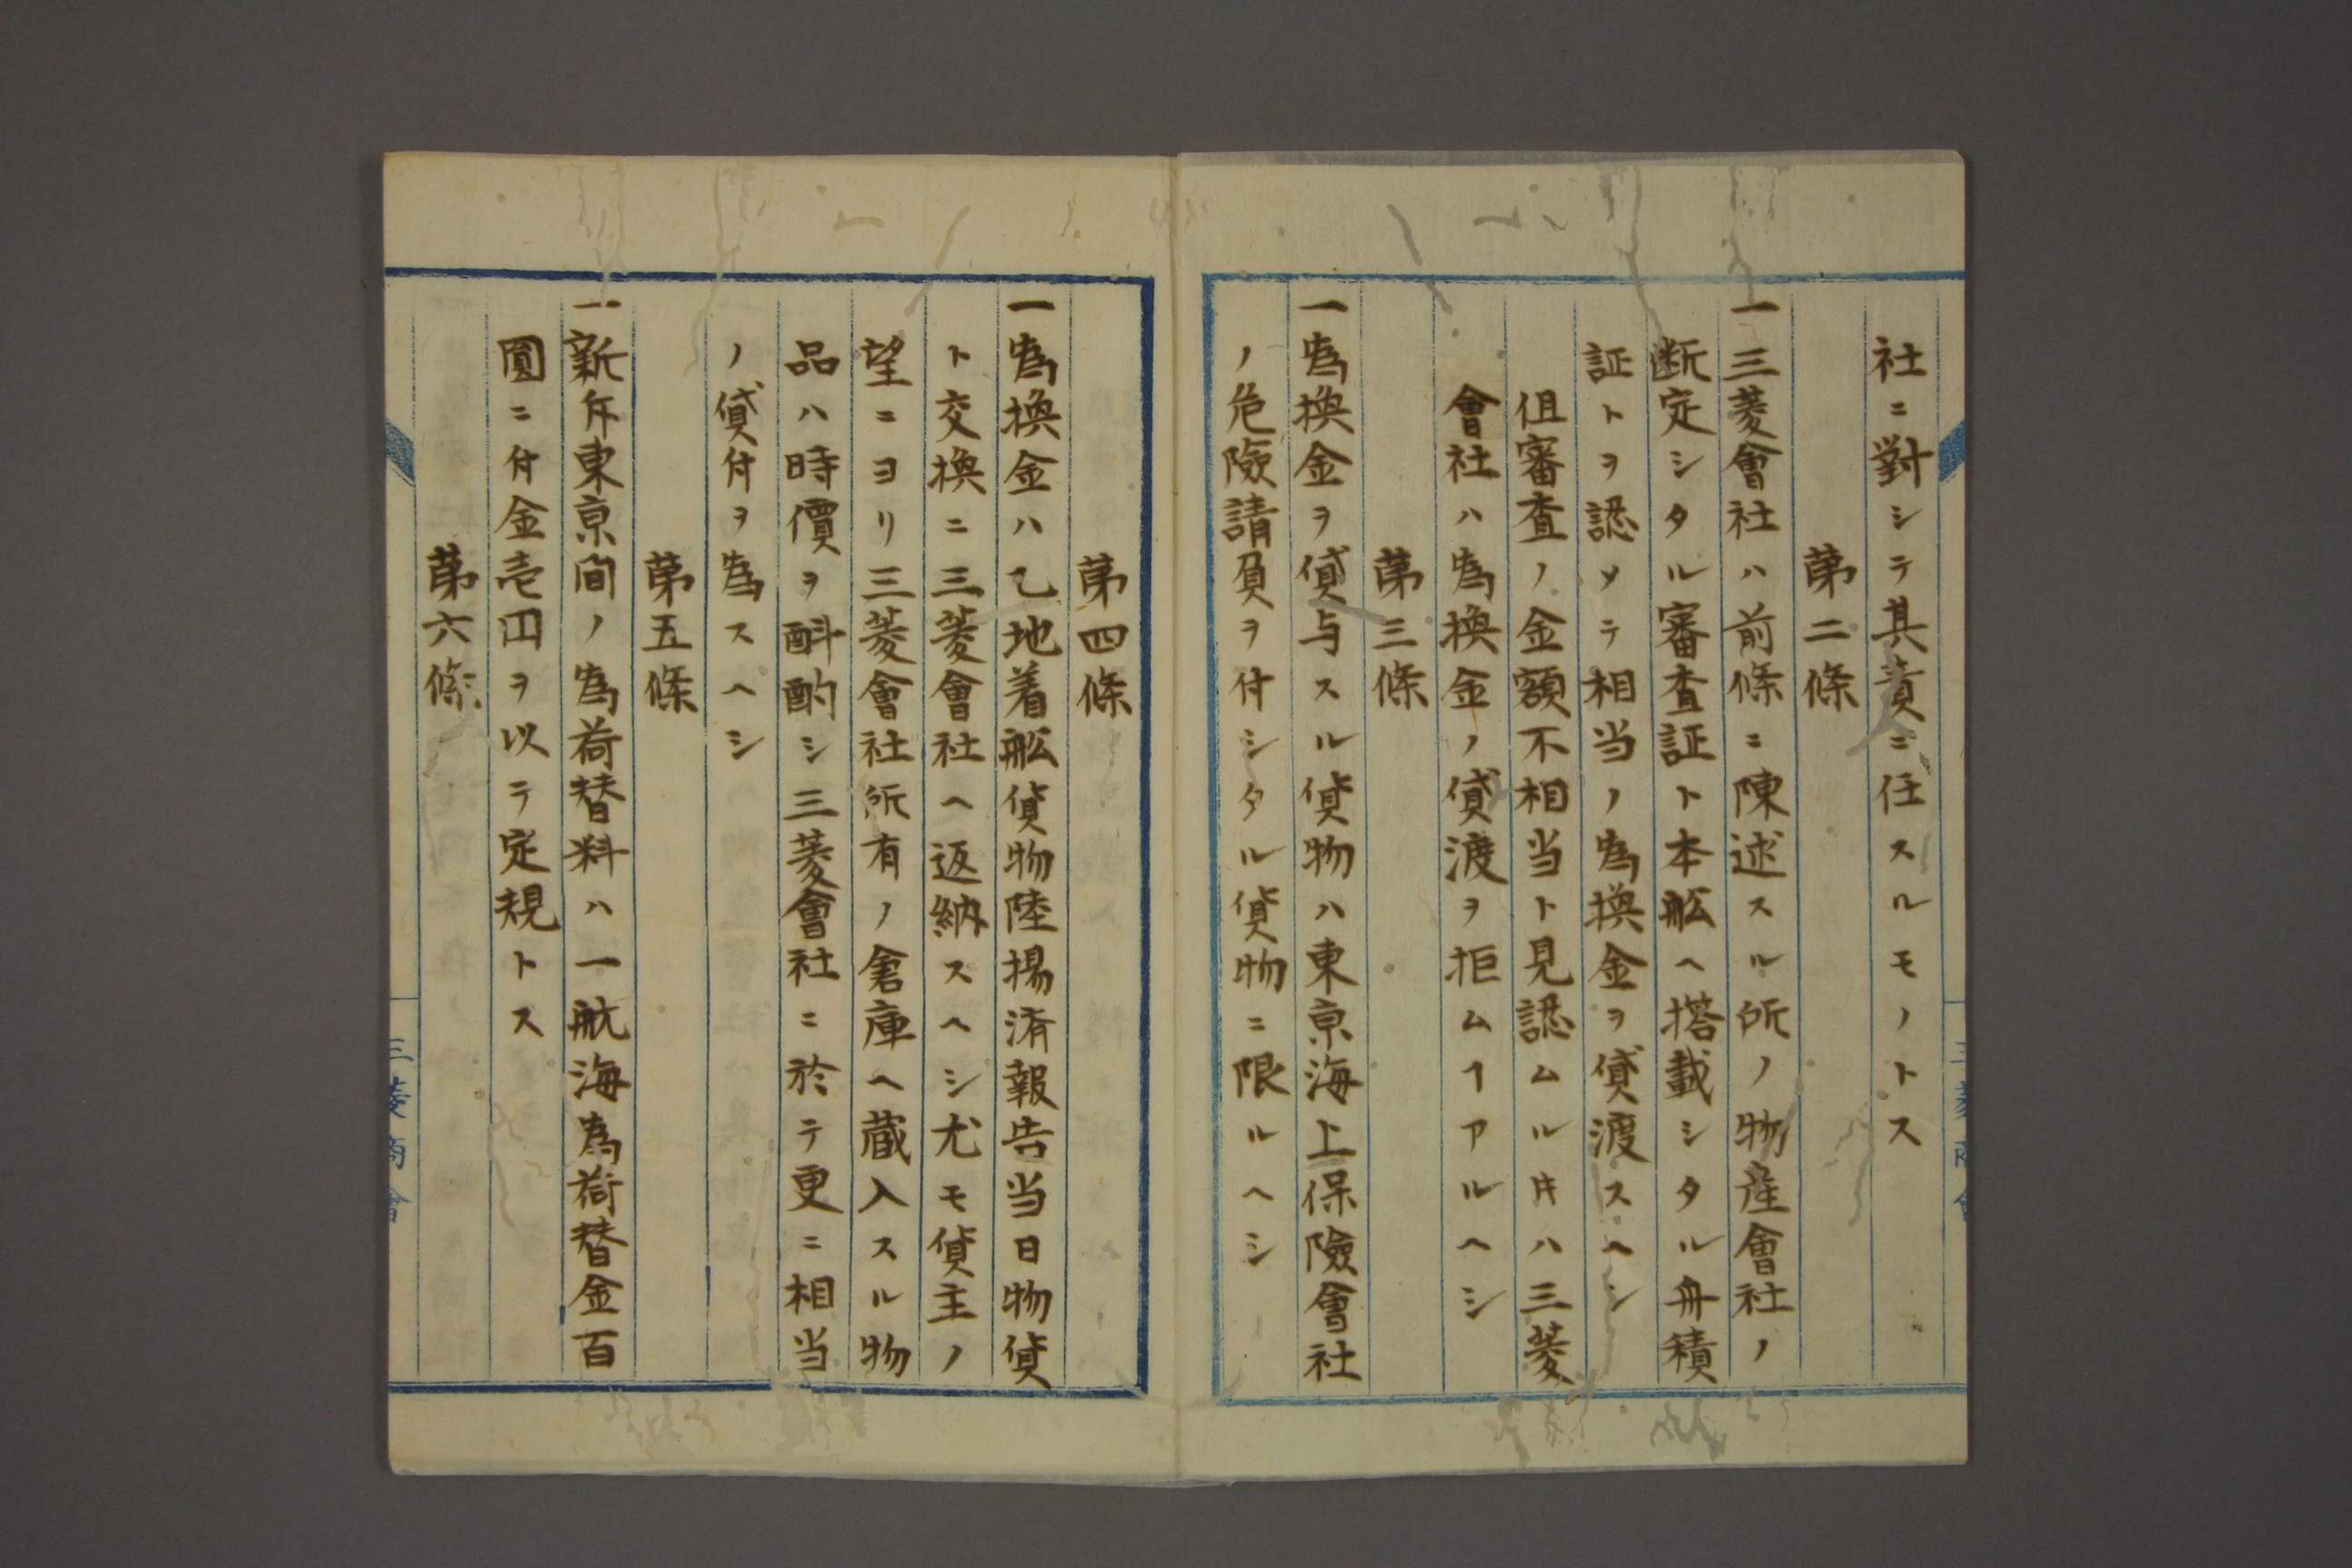 社ニ對シテ其責ニ任スルモノトス
第二條
一三菱會社ハ前條ニ陳述スル所ノ物産會社ノ
断定シタル審査証ト本舩ヘ搭載シタル舟積
証トヲ認メテ相当ノ為換金ヲ貸渡スヘシ
但審査ノ金額不相当ト見認ムル㪅ハ三菱
會社ハ為換金ノ貸渡ヲ拒ムヿアルヘシ
第三條
一為換金ヲ貸与スル貨物ハ東京海上保險會社
ノ危險請負ヲ付シタル貨物ニ限ルヘシ
第四條
一為換金ハ乙地着舩貨物陸揚済報告当日物貨
ト交換ニ三菱會社ヘ返納スヘシ尤モ貨主ノ
望ニヨリ三菱會社所有ノ倉庫ヘ蔵入スル物
品ハ時價ヲ斟酌シ三菱會社ニ於テ更ニ相当
ノ貸付ヲ為スヘシ
第五條
一新斥東京間ノ為荷替料ハ一航海為荷替金百
圓ニ付金壱円ヲ以テ定規トス
第六條
三菱商會
三菱商會